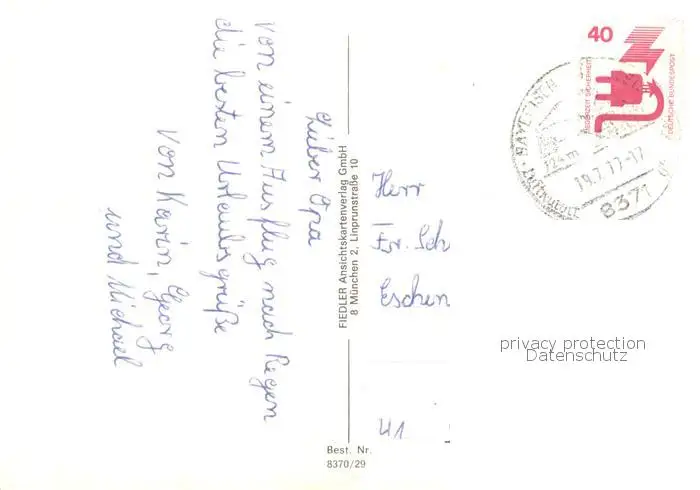 Lieber Opa
Von einem Ausflug nach Regen
die besten Urlaubsgrüße
Von Karin, Georg
und Michael
FIEDLER Ansichtskartenverlag GmbH
8 München 2, Linprunstraße 10
Best. Nr.
8370/29
Herr
Fr. Sch
Eschen
41
40
JEDERZEIT SICHERHEIT
DEUTSCHE BUNDESPOST
19.7.77-17
8371
privacy protection
Datenschutz